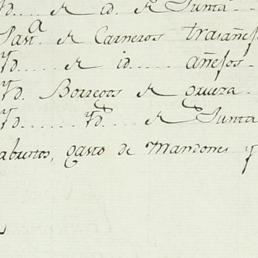 Yd..... de id. de Junta
Past.ª de Carneros trasañejos
Yd...... de id.... añejos.
Yd. Borregos de oveza
Yd..... Yd.... de Junta
abiertos, gasto de Mandones y